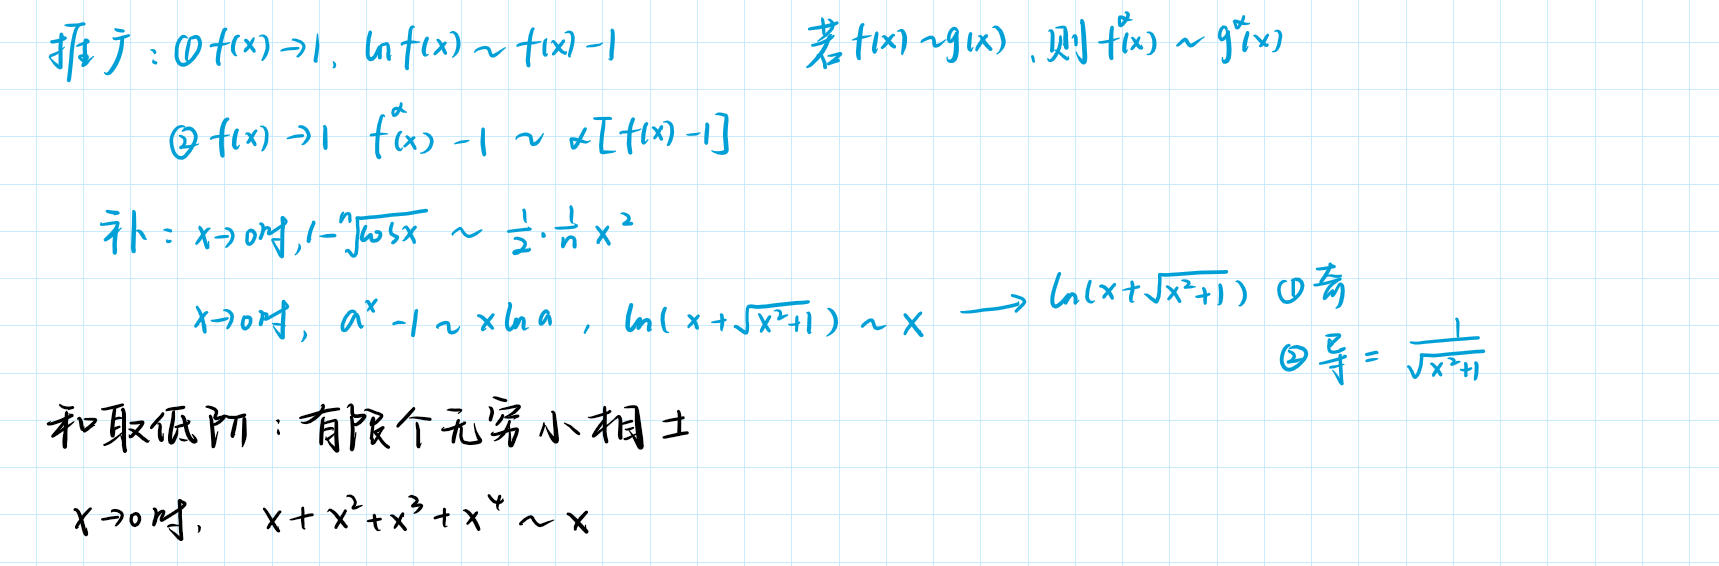 推广：① f(x)→1, ln f(x) ~ f(x)-1 若 f(x)~g(x), 则 f^α(x) ~ g^α(x)
② f(x)→1 f^α(x) -1 ~ α[f(x)-1]
补：x→0时, 1-ⁿ√cosx ~ 1/2·1/n x²
x→0时, a^x -1 ~ x ln a , ln(x+√(x²+1)) ~ x → ln(x+√(x²+1)) ① 奇
② 导 = 1/√(x²+1)
和取低阶：有限个无穷小相±
x→0时, x+x²+x³+x⁴ ~ x